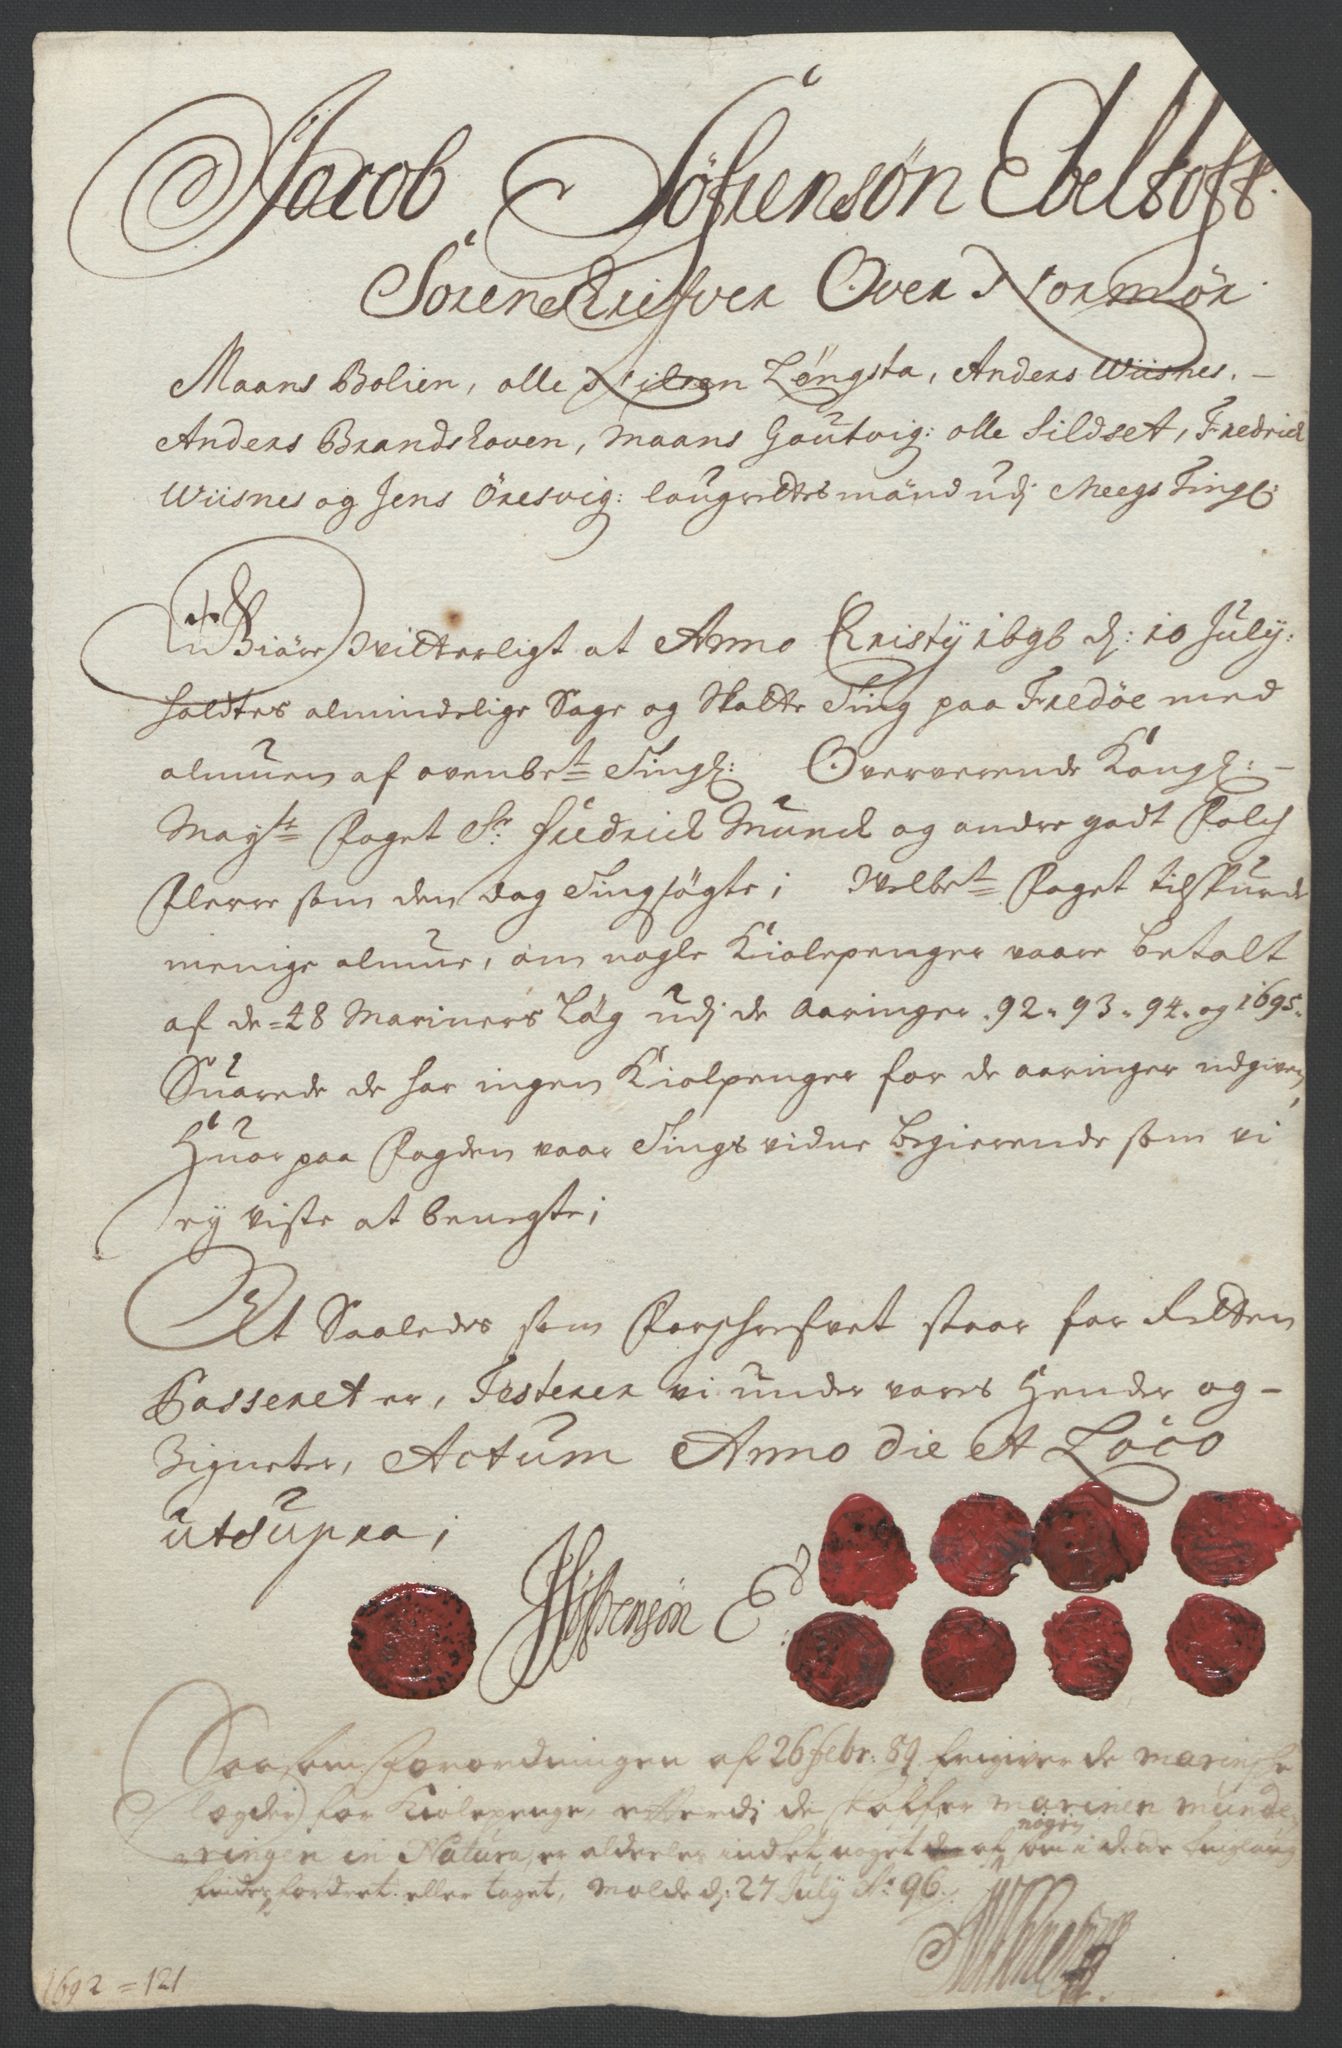 Jacob Søfrensøn Ebeltoft
Sorenskrifver Over Normør
Maans Bolien, olle Nilsen Löngsta, Anders Wiisnes,
Anders Brandshoven, Maans Gautvig: olle Sildset, Fredrick
Wiisnes og Jens Öresvig: laugrettes mänd udj Meegs Tingl:
Giöre Witterligt at Anno Cristÿ 1696 d: 10 July:
holdtes almindelige Sage og Skatte Ting paa Fredöe med
almuen af ovenbet Tingl: Oververende Kongl:
Mayts Foget Sr. Fredrich Munck og andre godt Folch
Flerre som den dag Tingsögte; Welbet Foget tilspurde
menige almue, om nogle Kiolepenger vaare betalt
af de 48 Mariners Läg udj de Aaringer 92. 93. 94. og 1695.
Suarede de har ingen Kiolpenger for de aaringer udgiven,
Huor paa Fogden vaar Tings vidne begierende som vi
ey viste at benegte;
At Saaledes som Forschrefvet staar for Retten
Passeret er, Testerer vi under vores Hender og
Zigneter, Actum Anno die et Loco
utsupra;
JSøfrensøn E
Saasom forordningen af 26 febr: 89 fri giver de marinske
lægder for Kiolepenge, efterdj de skaffer marinen munde-
ringen in Natura, er alderles indtet noget af nogen i dette
fordret eller taget, Molde d: 27 July Ao 96.
1692 = 121